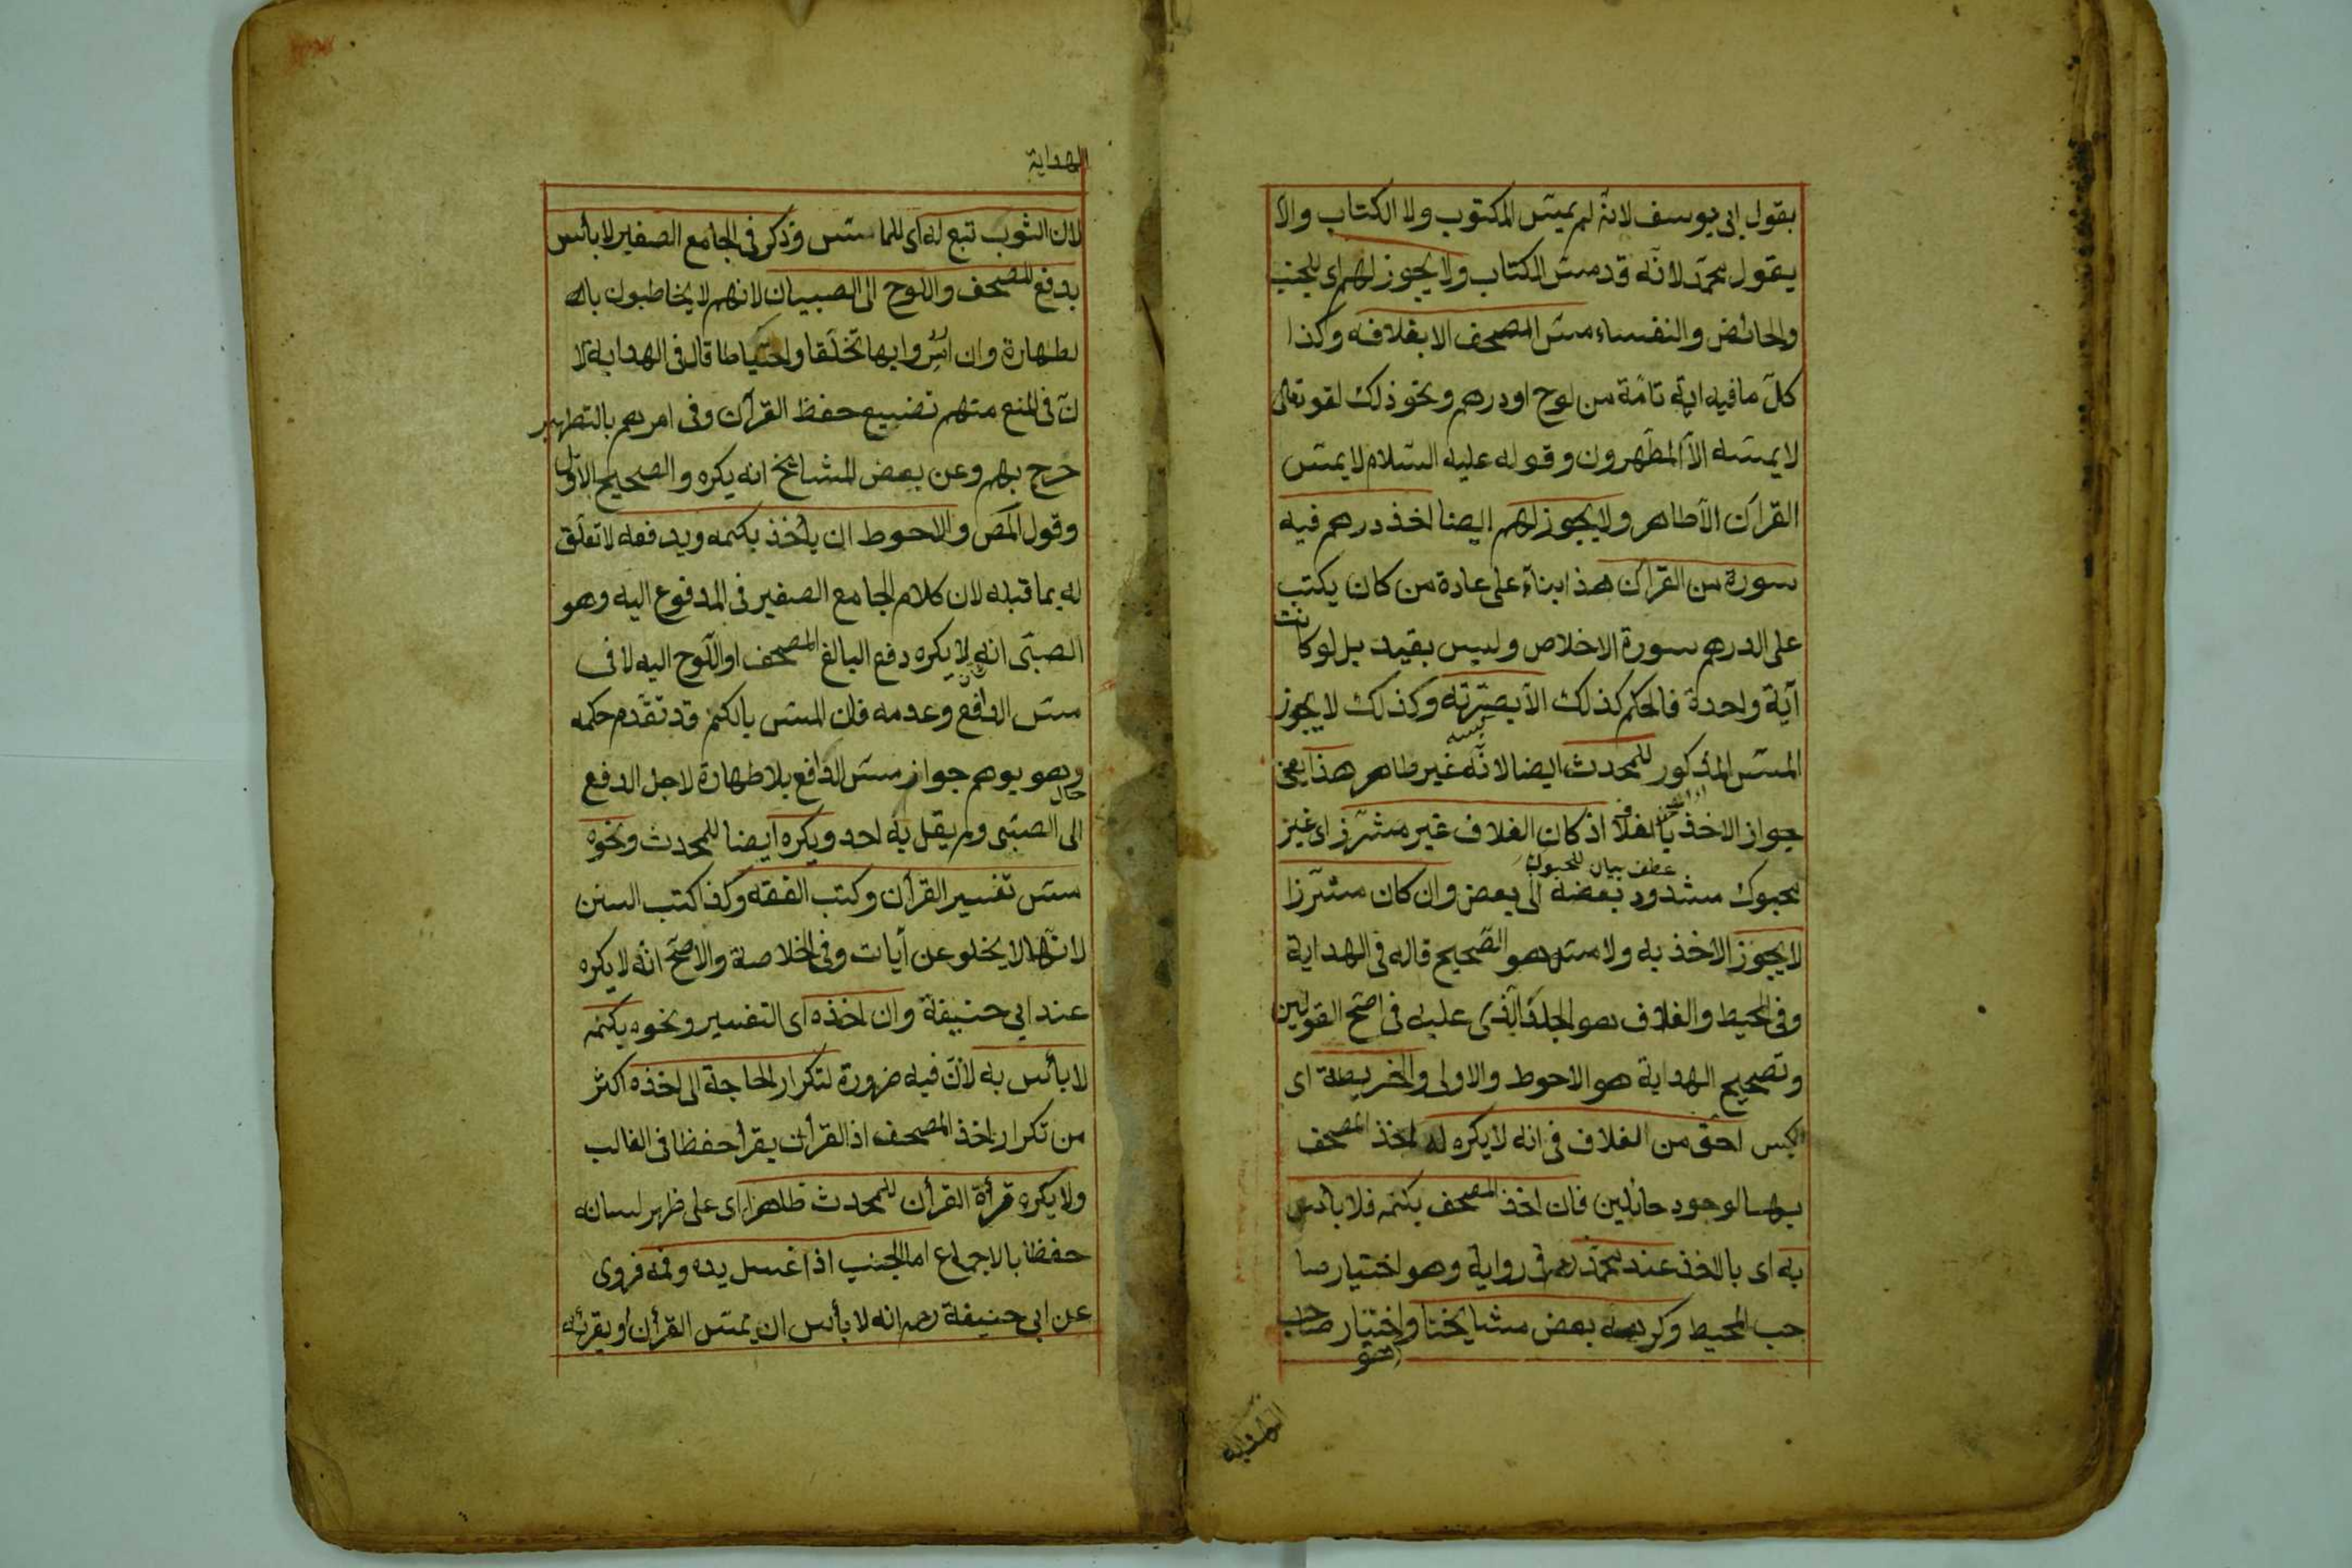 بقول ابى يوسف لانه لم يمس المكتوب ولا الكتاب والا
يقول محمد لانه قد مس الكتاب ولا يجوز لهم اى للجنب
والحائض والنفساء مس المصحف الا بغلافه وكذا
كل ما فيه اية تامة من لوح او درهم ونحو ذلك لقو تعالى
لا يمسه الا المطهرون وقوله عليه السلام لا يمس
القرآن الا طاهر ولا يجوز لهم ايضا اخذ درهم فيه
سورة من القرآن هذا بناء على عادة من كان يكتب
على الدرهم سورة الاخلاص وليس بقيد بل لو كانت
آية واحدة فالحكم كذلك الا بصرته وكذلك لا يجوز
المس المذكور للمحدث ايضا لانه غير طاهر هذا يعنى
جواز الاخذ بالغلاف اذ كان الغلاف غير مشرز اى غيز
عطف بيان للمحبوك
محبوك مشدود بعضه الى بعض وان كان مشرزا
لا يجوز الاخذ به ولا مسه هو الصحيح قاله فى الهداية
وفى المحيط والغلاف هو الجلد الذى عليه فى اصح القولين
وتصحيح الهداية هو الاحوط والاولى والخريطة اى
الكيس احق من الغلاف فى انه لا يكره له اخذ المصحف
بها لوجود حائلين فان اخذ المصحف بكمه فلا بأس
به اى بالاخذ عند محمد رح فى رواية وهو اختيار صا
حب المحيط وكرهه بعض مشايخنا واختيار صاحب
الهداية
الهداية
لان الثوب تبع له اى للماس وذكر فى الجامع الصغير لا بأس
بدفع المصحف واللوح الى الصبيان لانهم لا يخاطبون بال
لطهارة وان امروا بها تخلقا واحتياطا قال فى الهداية لا
ن فى المنع منهم تضييع حفظ القرآن وفى امرهم بالتطهير
حرج بهم وعن بعض المشائخ انه يكره والصحيح الاول
وقول المص والاحوط ان يأخذ بكمه ويدفعه لا تعلق
له بما قبله لان كلام الجامع الصغير فى المدفوع اليه وهو
الصبى انه لا يكره دفع البالغ المصحف او اللوح اليه لا فى
مس الدافع وعدمه فان المس بالكم قد تقدم حكمه
وهو يوهم جواز مس الدافع بلا طهارة لاجل الدفع
الى الصبى ولم يقل به احد ويكره ايضا للمحدث ونحوه
مس تفسير القرآن وكتب الفقه وكذا كتب السنن
لانها لا يخلو عن آيات وفى الخلاصة والاصح انه لا يكره
عند ابى حنيفة وان اخذه اى التفسير ونحوه بكمه
لا بأس به لان فيه ضرورة لتكرار الحاجة الى اخذه اكثر
من تكرار اخذ المصحف اذ القرآن يقرأ حفظا فى الغالب
ولا يكره قرأة القرآن للمحدث ظاهرا اى على ظهر لسانه
حفظا بالاجماع اما الجنب اذا غسل يده وفمه فروى
عن ابى حنيفة رح انه لا بأس ان يمس القرآن او يقرئه